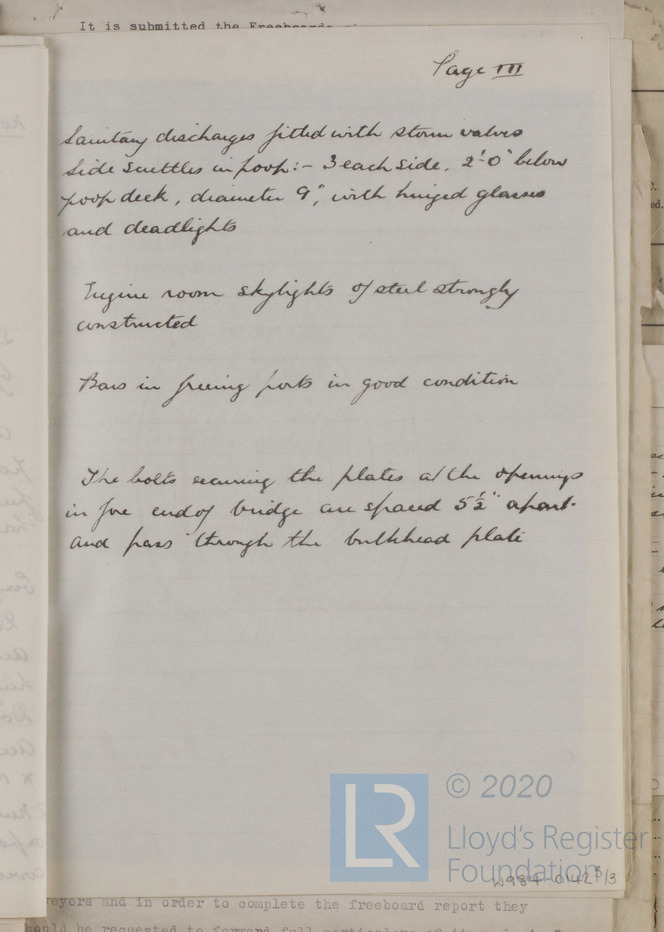 It is submitted the Freeboards
Page III
Sanitary discharges fitted with storm valves
Side scuttles in poop:- 3 each side, 2'-0" below
poop deck, diameter 9", with hinged glasses
and deadlights
Engine room skylights of steel strongly
constructed
Bars in freeing ports in good condition
The bolts securing the plates at the openings
in fore end of bridge are spaced 5½" apart
and pass through the bulkhead plate
LR
© 2020
Lloyd's Register
Foundation
W984-0142 3/3
veyors and in order to complete the freeboard report they